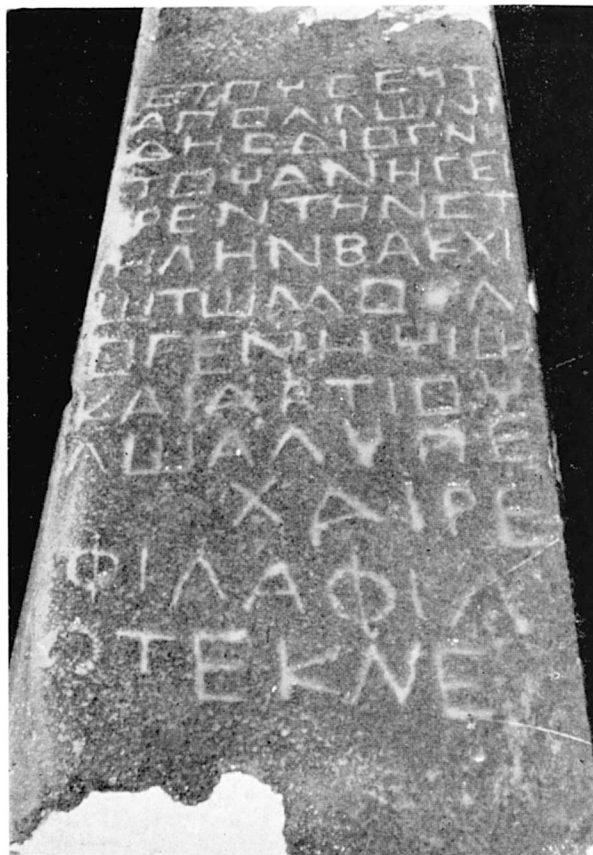 ΕΤΟΥϹΕΥΤ
ΑΠΟΛΛΩΝΙ
ΔΗϹΔΙΟΓΝΗ
ΤΟΥΑΝΗΓΕ
ΡΕΝΤΗΝϹΤ
ΗΛΗΝΒΑΚΧΙ
ΩΤΩΜΟΝ
ΟΓΕΝΗΥΙΩ
ΚΑΙΑΡΤΙΟΥ
ΛΩΑΛΥΠΕ
ΧΑΙΡΕ
ΦΙΛΑΦΙΛ
ΟΤΕΚΝΕ